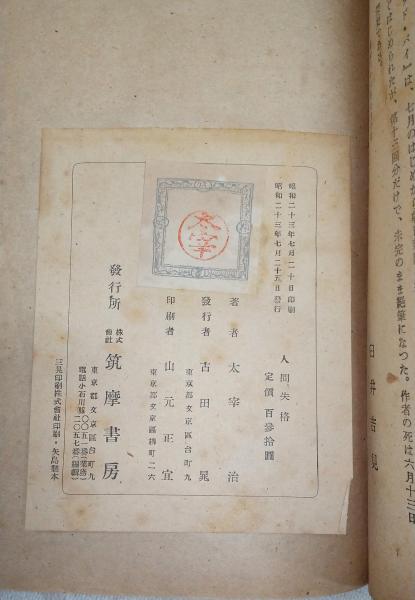 ド・バイ』は、七月
てはじめられたが、第十三回分だけで、未完のまま絶筆になつた。作者の死は六月十三日
臼井吉見
昭和二十三年七月二十日印刷
昭和二十三年七月二十五日發行
人間失格
定價 百參拾圓
著者 太宰治
發行者 古田晁
東京都文京區台町九
印刷者 山元正宜
東京都文京區
太宰
發行所 株式會社 筑摩書房
東京都文京區台町九
電話小石川
三晃印刷株式會社印刷・矢島製本